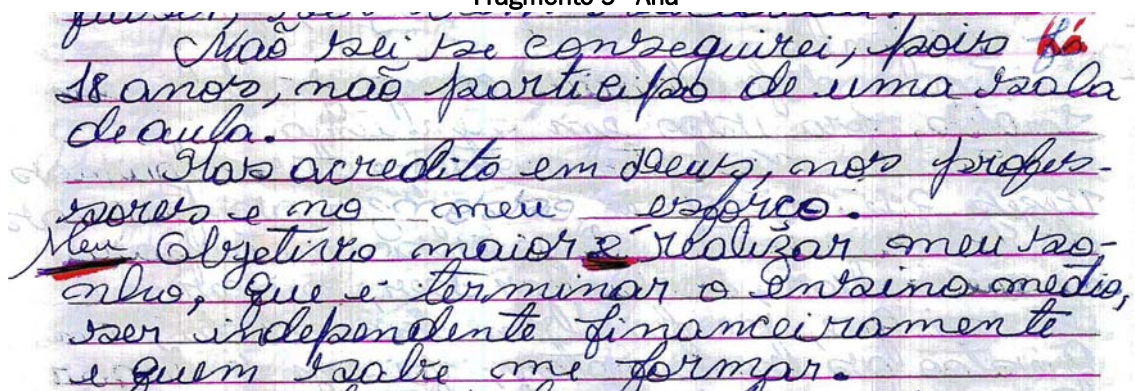 Fragmento 5 - Ana
Não sei se conseguirei, pois há
18 anos, não participo de uma sala
de aula.
Mas acredito em Deus, nos profes-
sores e no meu esforço.
Meu Objetivo maior é realizar meu so-
nho, que é terminar o Ensino médio,
ser independente financeiramente
e quem sabe me formar.